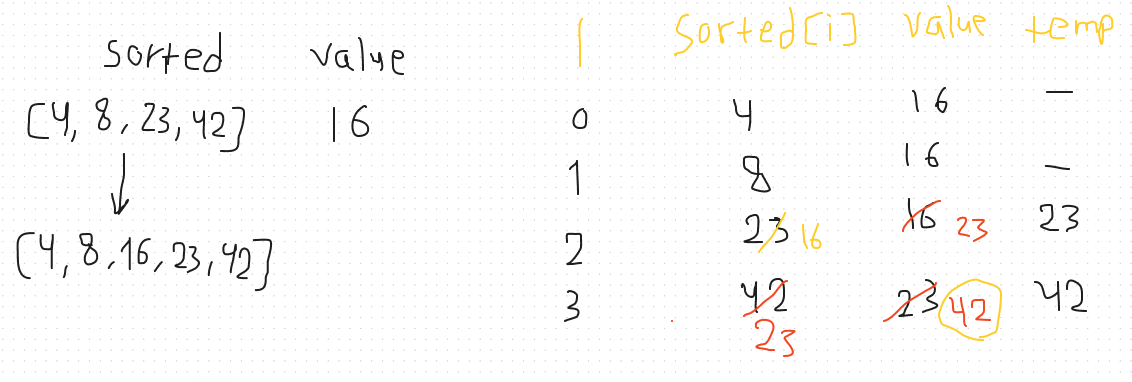 sorted value
[4, 8, 23, 42] 16
[4, 8, 16, 23, 42]
i sorted[i] value temp
0 4 16 —
1 8 16 —
2 23 16 16 23 23
3 42 23 23 42 42